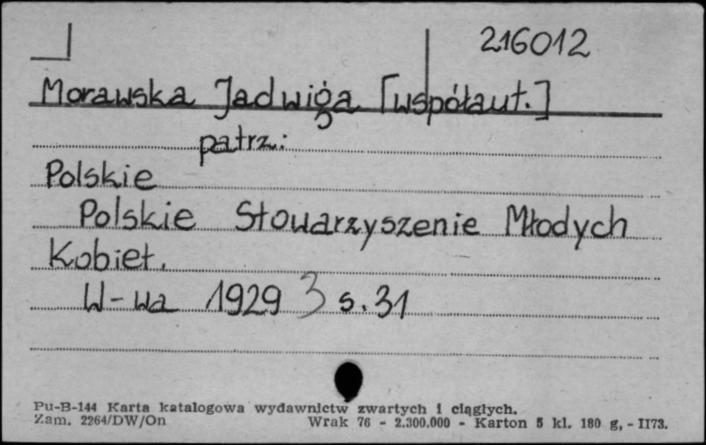 216012
Morawska Jadwiga [współaut.]
patrz:
Polskie
Polskie Stowarzyszenie Młodych
Kobiet.
W-wa 1929 3 s. 31
Pu-B-144 Karta katalogowa wydawnictw zwartych i ciągłych.
Zam. 2264/DW/On Wrak 76 - 2.300.000 - Karton 5 kl. 180 g. - II73.